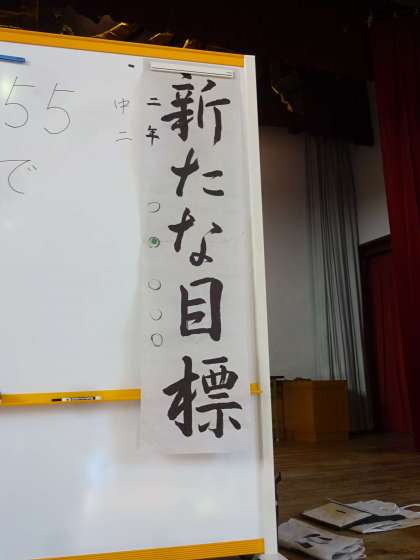 新たな目標
二年
○○○○○
中二
55
で